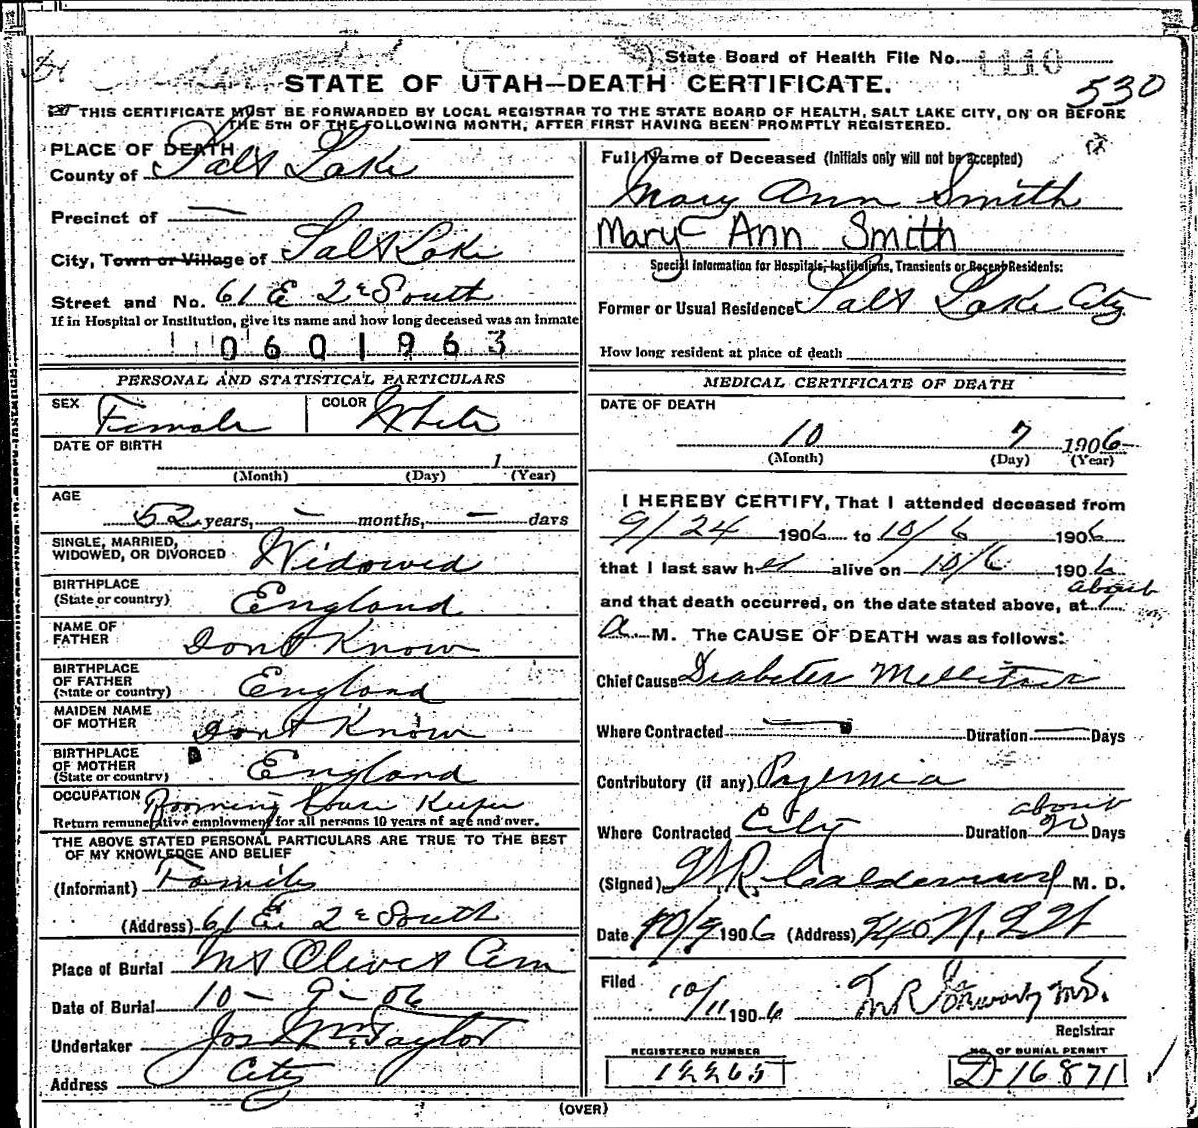 State Board of Health File No. 1110
STATE OF UTAH—DEATH CERTIFICATE.
530
THIS CERTIFICATE MUST BE FORWARDED BY LOCAL REGISTRAR TO THE STATE BOARD OF HEALTH, SALT LAKE CITY, ON OR BEFORE
THE 5TH OF THE FOLLOWING MONTH, AFTER FIRST HAVING BEEN PROMPTLY REGISTERED.
PLACE OF DEATH
County of Salt Lake
Precinct of —
City, Town or Village of Salt Lake
Street and No. 61 E 2d South
If in Hospital or Institution, give its name and how long deceased was an Inmate
0601963
PERSONAL AND STATISTICAL PARTICULARS
SEX Female COLOR White
DATE OF BIRTH
1
(Month) (Day) (Year)
AGE
52 years, — months, — days
SINGLE, MARRIED,
WIDOWED, OR DIVORCED Widowed
BIRTHPLACE
(State or country) England
NAME OF
FATHER Dont Know
BIRTHPLACE
OF FATHER
(State or country) England
MAIDEN NAME
OF MOTHER Dont Know
BIRTHPLACE
OF MOTHER
(State or country) England
OCCUPATION Rooming House Keeper
Return remunerative employment for all persons 10 years of age and over.
THE ABOVE STATED PERSONAL PARTICULARS ARE TRUE TO THE BEST
OF MY KNOWLEDGE AND BELIEF
(Informant) Family
(Address) 61 E 2d South
Place of Burial Mt Olivet Cem
Date of Burial 10 - 9 - 06
Undertaker Jos Wm Taylor
Address City
Full Name of Deceased (Initials only will not be accepted)
Mary Ann Smith
Mary Ann Smith
Special Information for Hospitals, Institutions, Transients or Recent Residents:
Former or Usual Residence Salt Lake City
How long resident at place of death
MEDICAL CERTIFICATE OF DEATH
DATE OF DEATH
10 7 1906
(Month) (Day) (Year)
I HEREBY CERTIFY, That I attended deceased from
9/24 1906 to 10/6 1906
that I last saw her alive on 10/6 1906
about
and that death occurred, on the date stated above, at 1
a M. The CAUSE OF DEATH was as follows:
Chief Cause Diabetes Mellitus
Where Contracted — Duration — Days
Contributory (if any) Pyemia
about
Where Contracted City Duration 20 Days
(Signed) M. D.
Date 10/9 1906 (Address)
Filed
10/11 1906
Registrar
REGISTERED NUMBER NO. OF BURIAL PERMIT
12265 D-16871
(OVER)